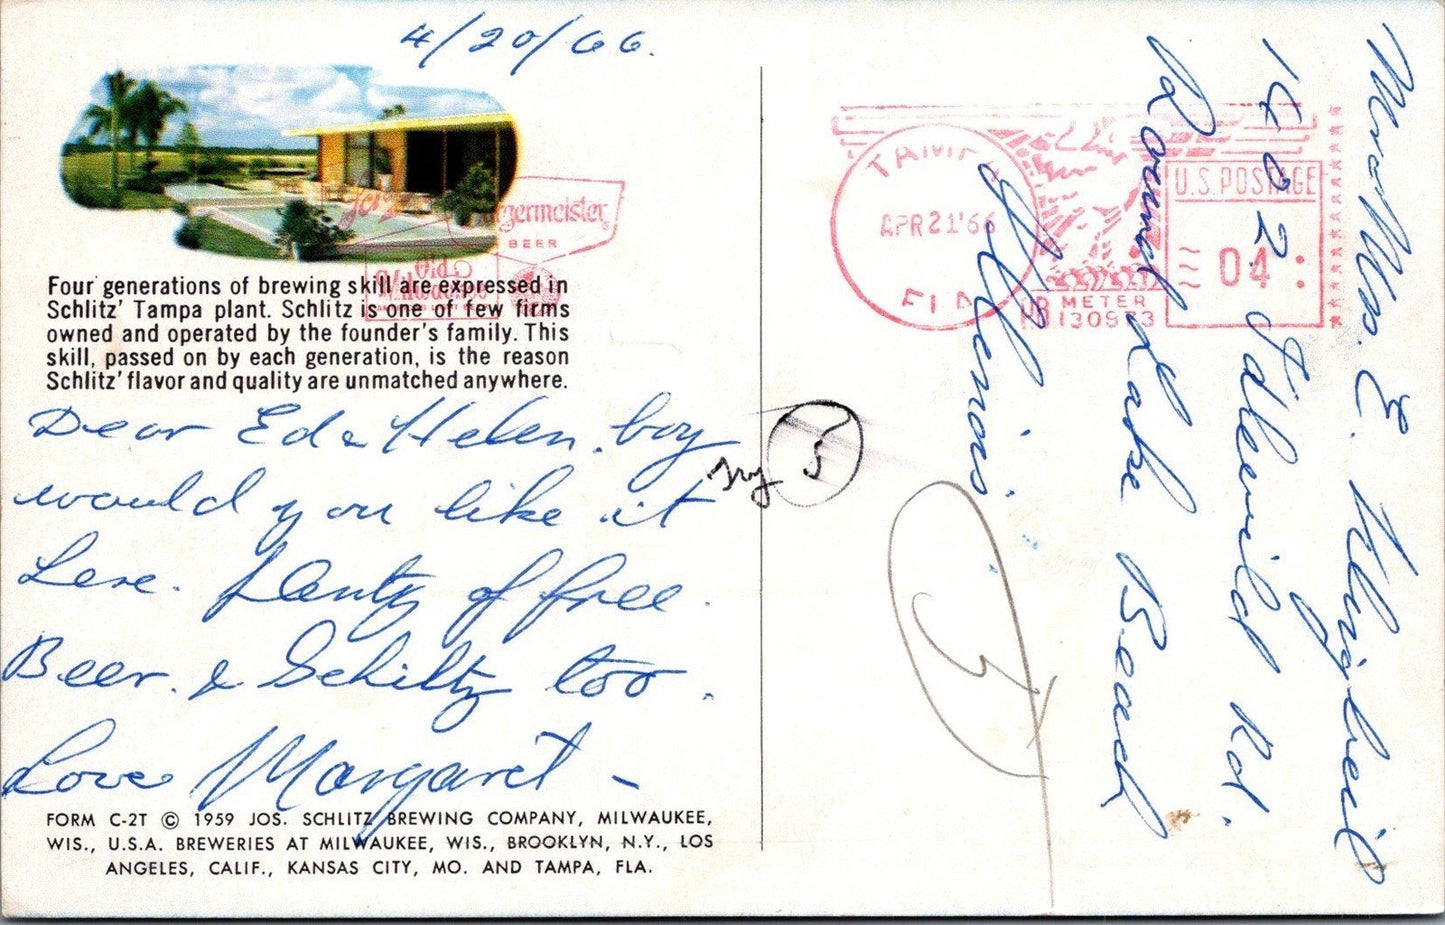 4/20/66.
Four generations of brewing skill are expressed in
Schlitz' Tampa plant. Schlitz is one of few firms
owned and operated by the founder's family. This
skill, passed on by each generation, is the reason
Schlitz' flavor and quality are unmatched anywhere.
Dear Ed & Helen. boy
would you like it
here. Plenty of free.
Beer. & Schiltz too.
Love Margaret -
FORM C-2T © 1959 JOS. SCHLITZ BREWING COMPANY, MILWAUKEE,
WIS., U.S.A. BREWERIES AT MILWAUKEE, WIS., BROOKLYN, N.Y., LOS
ANGELES, CALIF., KANSAS CITY, MO. AND TAMPA, FLA.
Burgermeister
BEER
Old
Milwaukee
TAMPA
APR 21 '66
FLA
U.S. POSTAGE
04
PB METER
130973
Mr & Mrs. E.
1402 Idlewild Rd.
Round Lake Beach
Illinois.
try 5